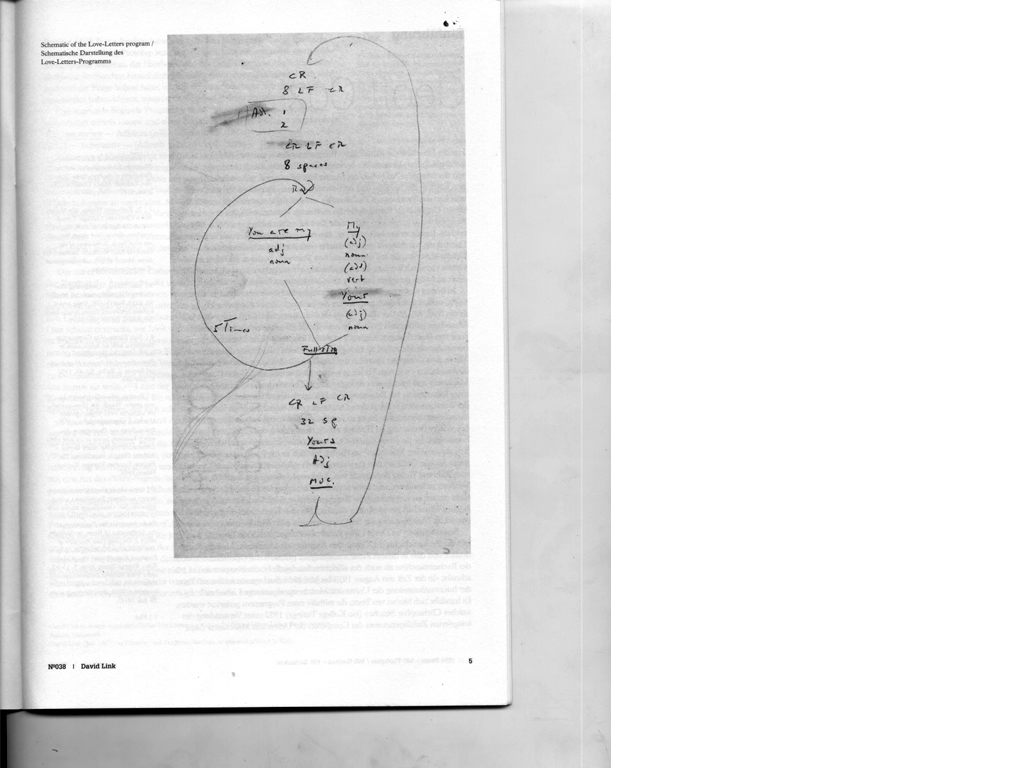 Schematic of the Love-Letters program /
Schematische Darstellung des
Love-Letters-Programms
CR
8 LF CR
Adj. 1
2
CR LF CR
8 spaces
Rnd
You are my
adj
noun
My
(adj)
noun
(adv)
verb
Your
(adj)
noun
5 Times
Full stop
CR LF CR
32 sp
Yours
Adj
MUC.
Nº038 | David Link
5